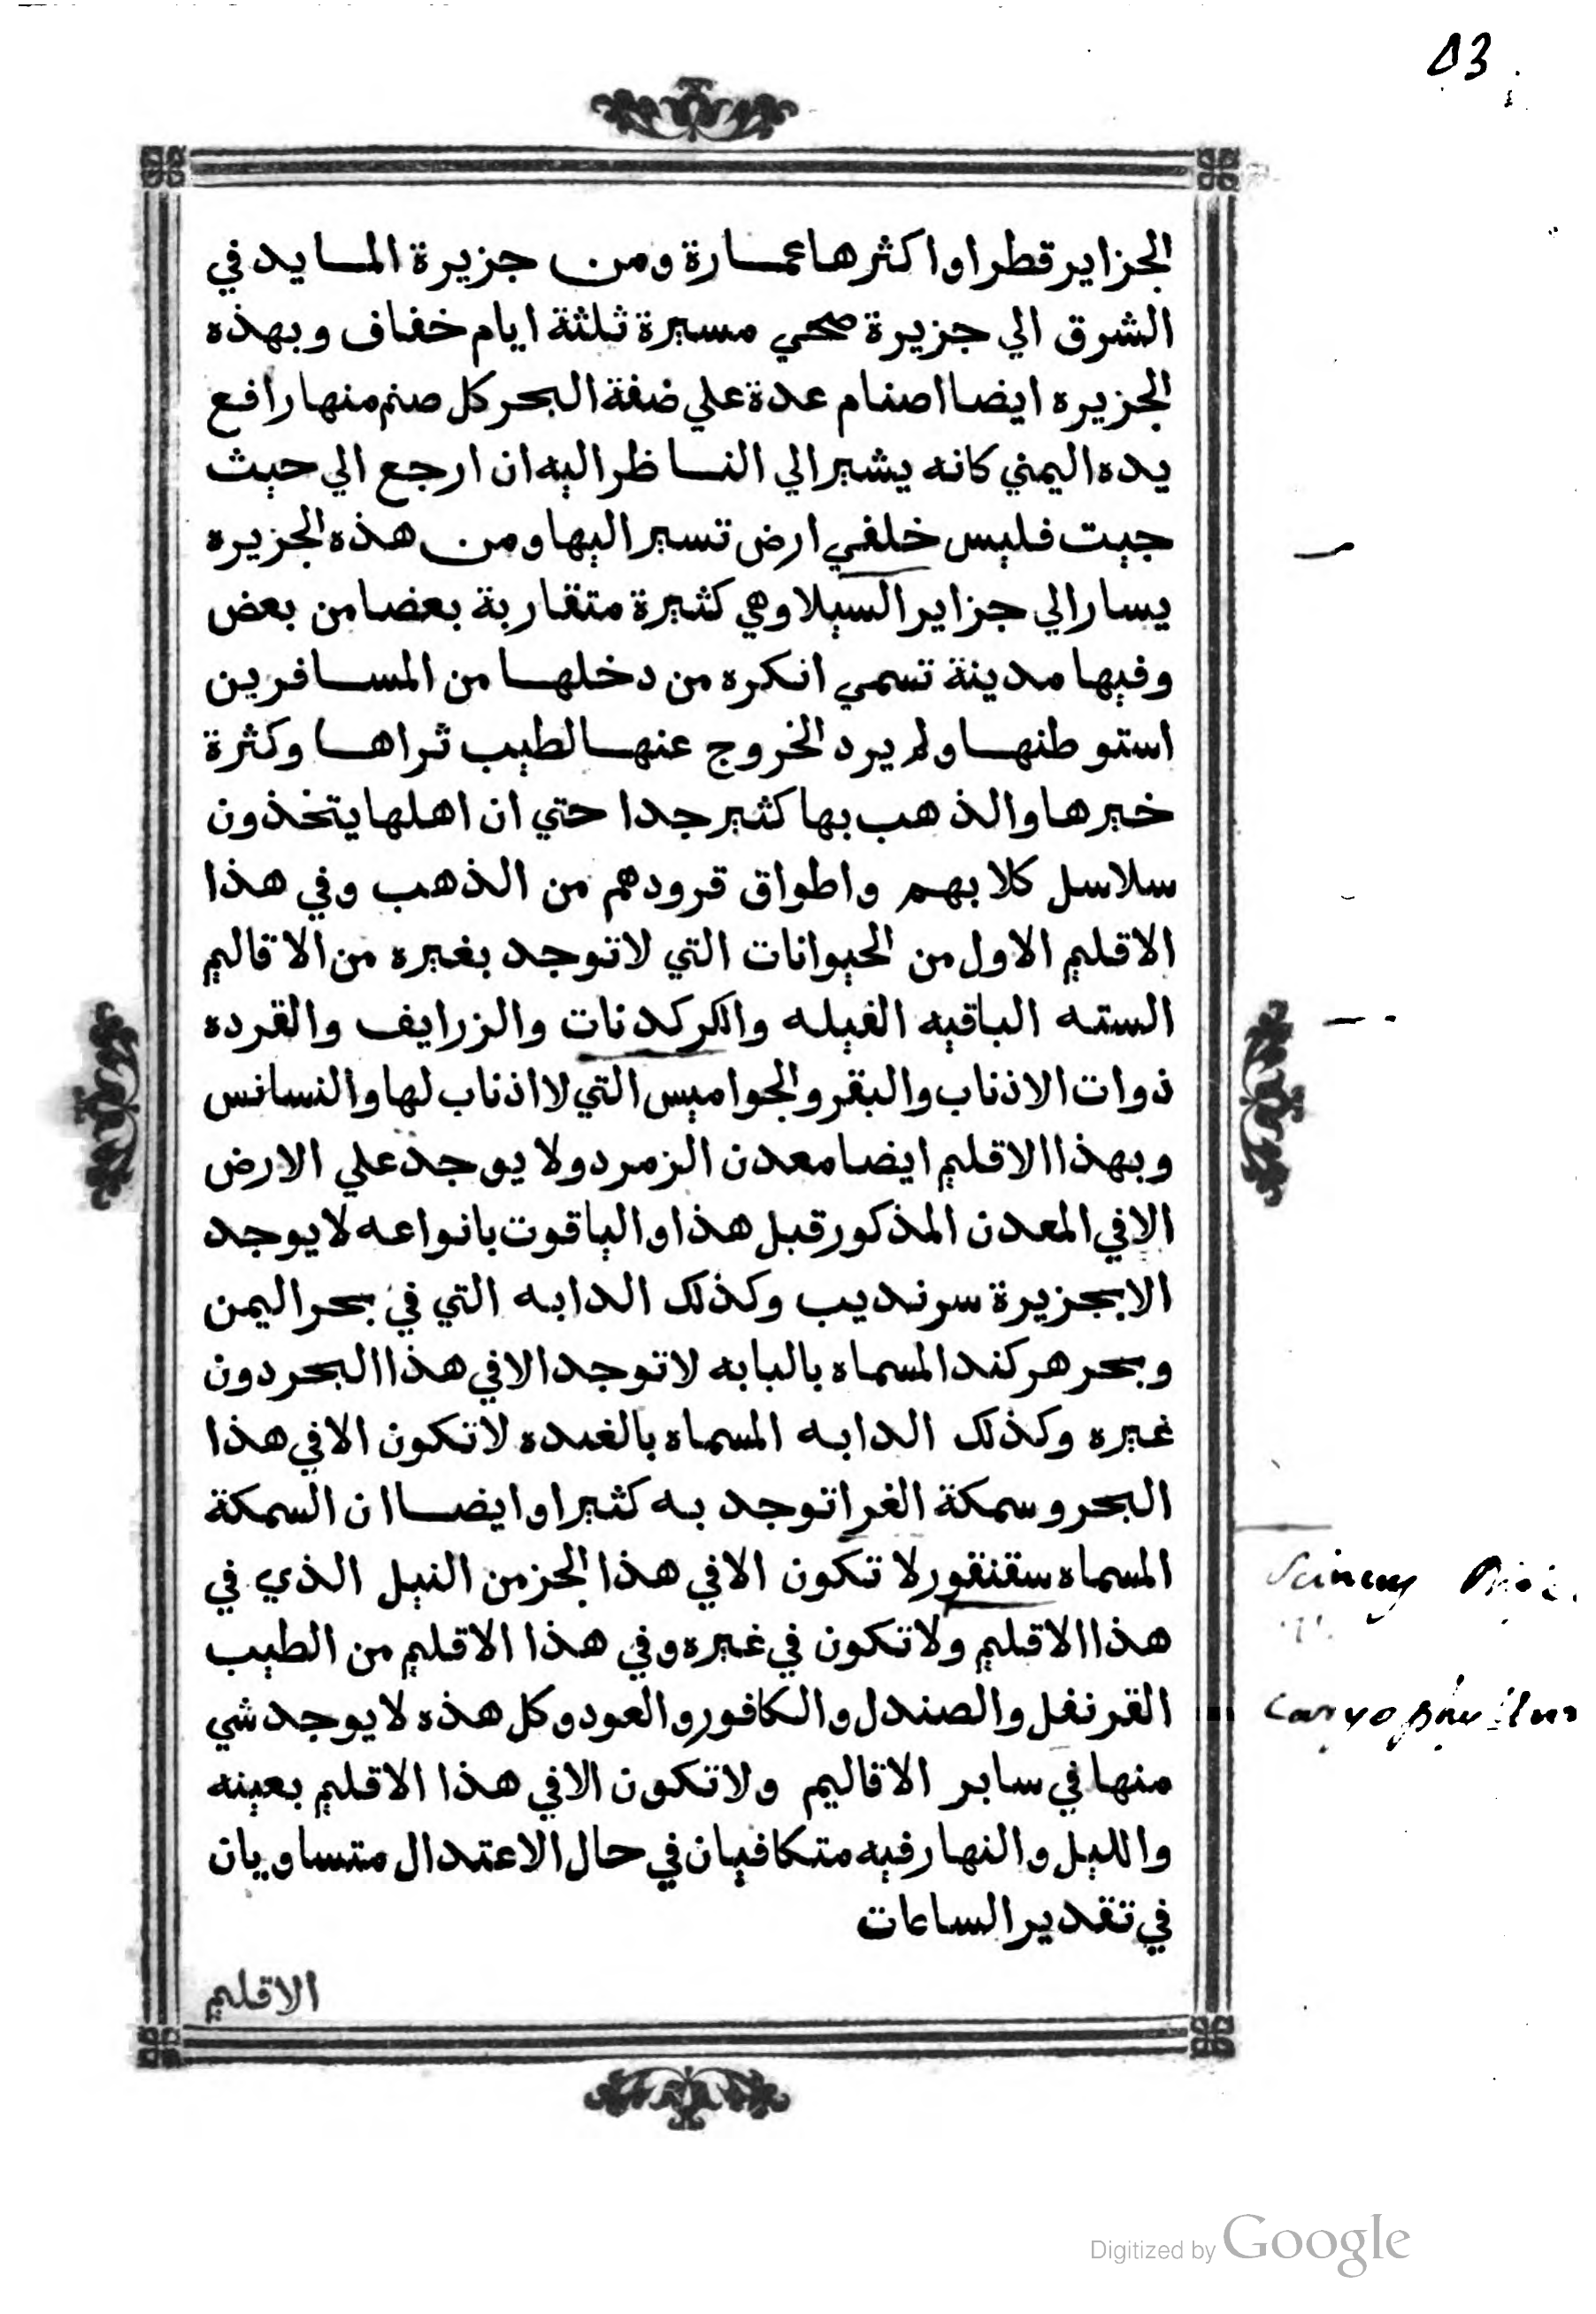 53
الجزاير قطرا واكثرها عمارة ومن جزيرة المايد في
الشرق الي جزيرة صحي مسيرة ثلثة ايام خفاف وبهذه
الجزيره ايضا اصنام عدة علي ضفة البحر كل صنم منها رافع
يده اليمني كانه يشير الي الناظر اليه ان ارجع الي حيث
جيت فليس خلفي ارض تسير اليها ومن هذه الجزيره
يسار الي جزاير السيلا وهي كثيرة متقاربة بعضا من بعض
وفيها مدينة تسمي انكره من دخلها من المسافرين
استوطنها ولم يرد الخروج عنها لطيب ثراها وكثرة
خيرها والذهب بها كثير جدا حتي ان اهلها يتخذون
سلاسل كلابهم واطواق قرودهم من الذهب وفي هذا
الاقليم الاول من الحيوانات التي لا توجد بغيره من الاقاليم
السته الباقيه الفيله والكركدنات والزرايف والقرده
ذوات الاذناب والبقر والجواميس التي لا اذناب لها والنسانس
وبهذا الاقليم ايضا معدن الزمرد ولا يوجد علي الارض
الا في المعدن المذكور قبل هذا والياقوت بانواعه لا يوجد
الا بجزيرة سرنديب وكذلك الدابه التي في بحر اليمن
وبحر هركند المسماه بالبابه لا توجد الا في هذا البحر دون
غيره وكذلك الدابه المسماه بالغيده لا تكون الا في هذا
البحر وسمكة الغرا توجد به كثيرا وايضا ان السمكة
المسماه سقنقور لا تكون الا في هذا الجز من النيل الذي في
هذا الاقليم ولا تكون في غيره وفي هذا الاقليم من الطيب
القرنفل والصندل والكافور والعود وكل هذه لا يوجد شي
منها في ساير الاقاليم ولا تكون الا في هذا الاقليم بعينه
والليل والنهار فيه متكافيان في حال الاعتدال متساويان
في تقدير الساعات
الاقليم
Scincus
Caryophyllum
Digitized by Google